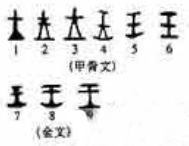 1 2 3 4 5 6
(甲骨文)
7 8 9
(金文)